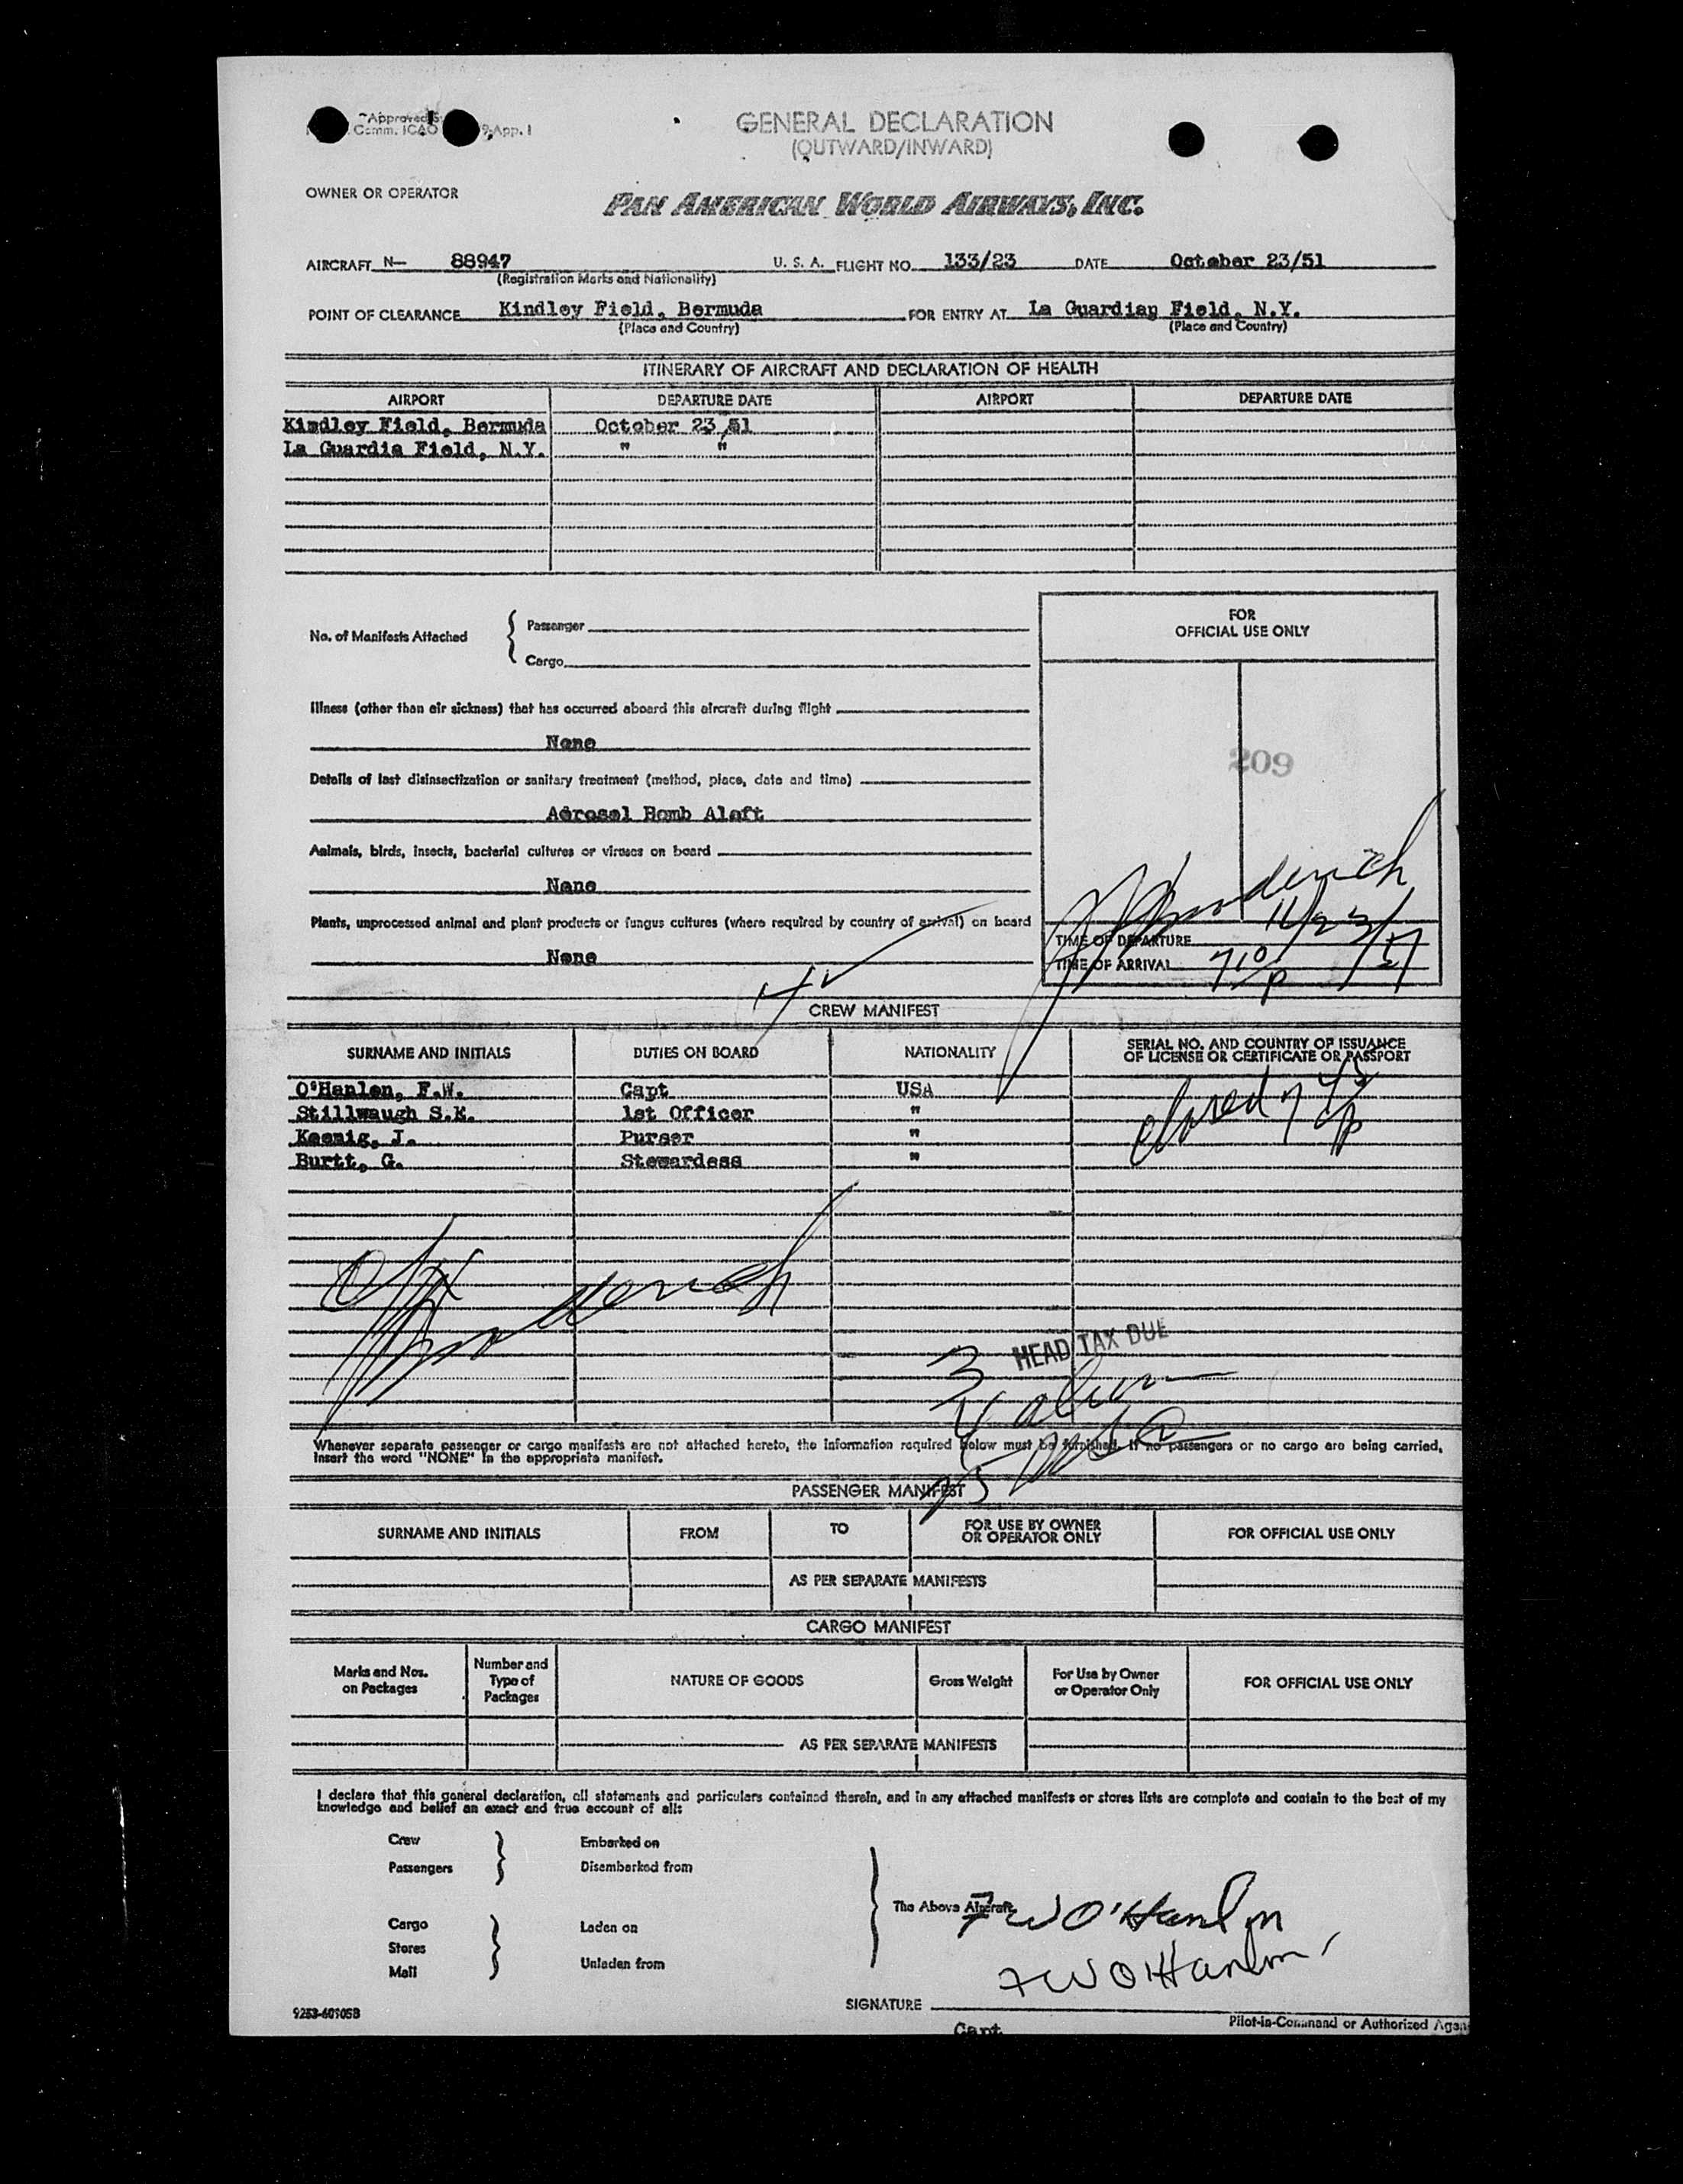 Approved
Comm. ICAO 9-App. I
GENERAL DECLARATION
(OUTWARD/INWARD)
OWNER OR OPERATOR
PAN AMERICAN WORLD AIRWAYS, INC.
AIRCRAFT N— 88947 U. S. A. FLIGHT NO. 133/23 DATE October 23/51
(Registration Marks and Nationality)
POINT OF CLEARANCE Kindley Field, Bermuda FOR ENTRY AT La Guardian Field, N.Y.
(Place and Country) (Place and Country)
ITINERARY OF AIRCRAFT AND DECLARATION OF HEALTH
AIRPORT DEPARTURE DATE AIRPORT DEPARTURE DATE
Kindley Field, Bermuda October 23,51
La Guardia Field, N.Y. " "
No. of Manifests Attached { Passenger
Cargo
FOR
OFFICIAL USE ONLY
Illness (other than air sickness) that has occurred aboard this aircraft during flight
None
209
Details of last disinsectization or sanitary treatment (method, place, date and time)
Aerosol Bomb Aloft
Animals, birds, insects, bacterial cultures or viruses on board
None
Plants, unprocessed animal and plant products or fungus cultures (where required by country of arrival) on board
None
TIME OF DEPARTURE
TIME OF ARRIVAL 710 p
CREW MANIFEST
SURNAME AND INITIALS DUTIES ON BOARD NATIONALITY SERIAL NO. AND COUNTRY OF ISSUANCE
OF LICENSE OR CERTIFICATE OR PASSPORT
O'Hanlon, F.W. Capt USA
Stillwaugh S.K. 1st Officer "
Koenig, J. Purser "
Burtt, G. Stewardess "
closed 7 45 p
HEAD TAX DUE
3
4 alien
25 USA
Whenever separate passenger or cargo manifests are not attached hereto, the information required below must be furnished. If no passengers or no cargo are being carried,
insert the word "NONE" in the appropriate manifest.
PASSENGER MANIFEST
SURNAME AND INITIALS FROM TO FOR USE BY OWNER
OR OPERATOR ONLY FOR OFFICIAL USE ONLY
AS PER SEPARATE MANIFESTS
CARGO MANIFEST
Marks and Nos.
on Packages Number and
Type of
Packages NATURE OF GOODS Gross Weight For Use by Owner
or Operator Only FOR OFFICIAL USE ONLY
AS PER SEPARATE MANIFESTS
I declare that this general declaration, all statements and particulars contained therein, and in any attached manifests or stores lists are complete and contain to the best of my
knowledge and belief an exact and true account of all:
Crew Embarked on
Passengers Disembarked from
The Above Aircraft
F W O'Hanlon
Cargo Laden on
Stores
Mail Unladen from
F W O'Hanlon
SIGNATURE
Capt
Pilot-in-Command or Authorized Agen
9253-60105B